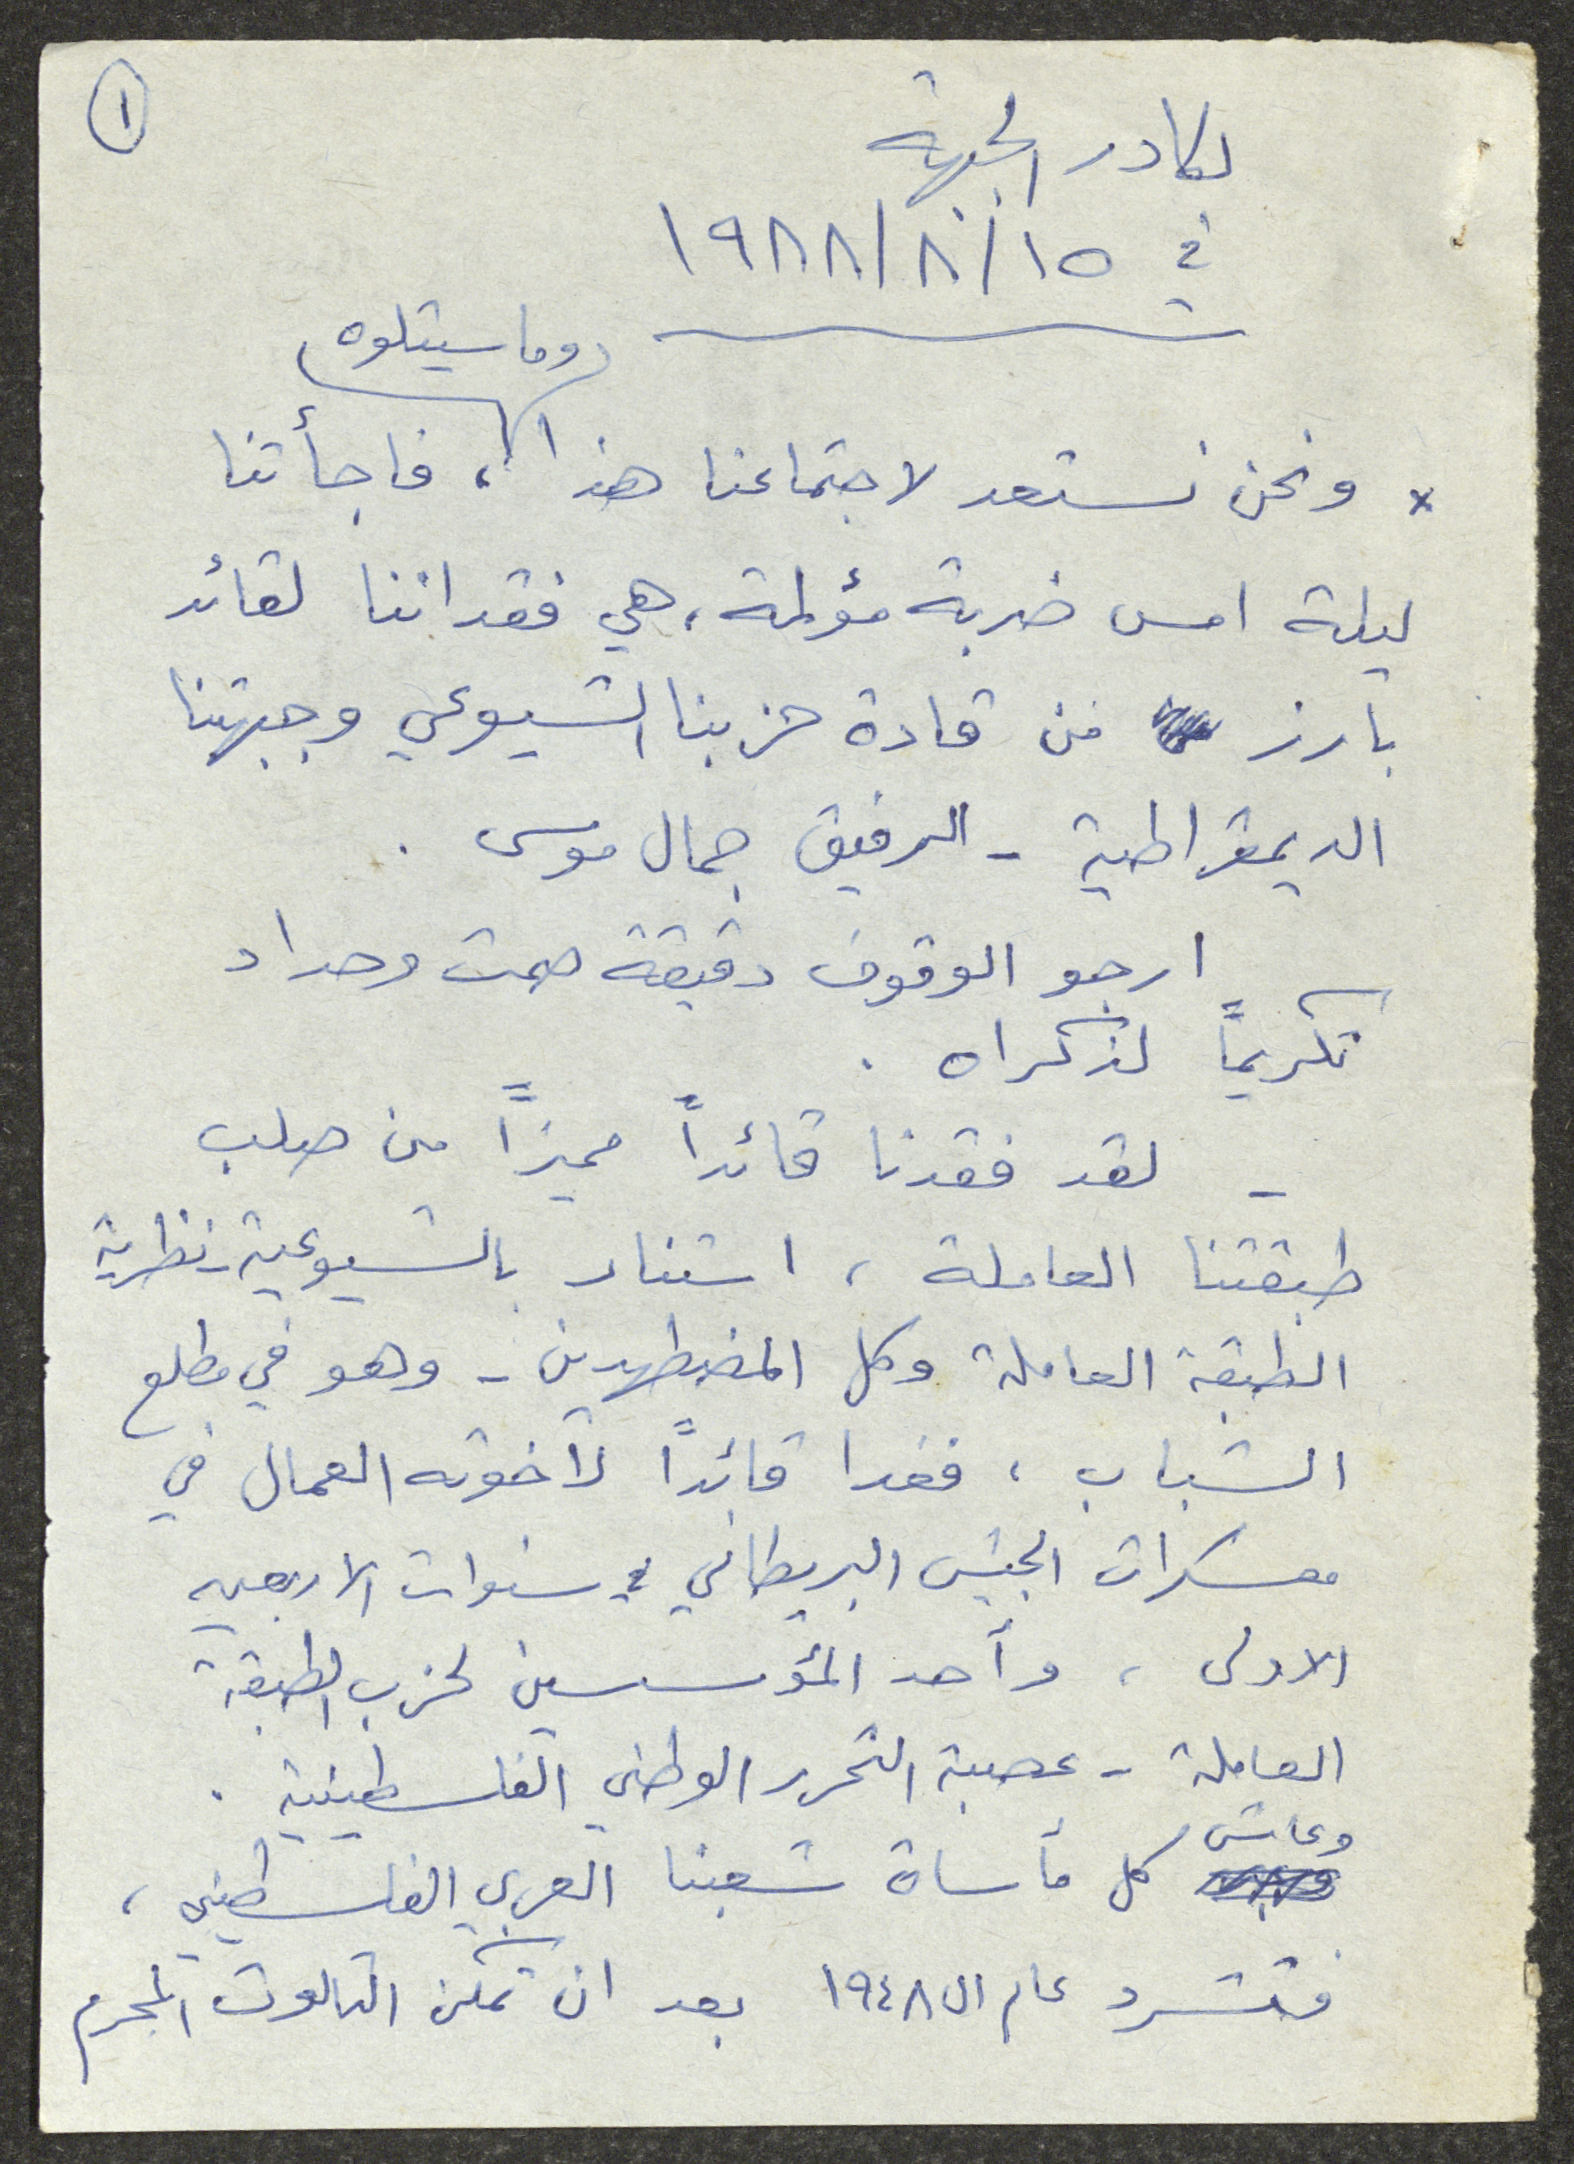 ١
لكادر الجبهة
في ١٥/٨/١٩٨٨
وما سيتلوه
* ونحن نستعد لاجتماعنا هذا، فاجأتنا
ليلة امس ضربة مؤلمة، هي فقداننا لقائد
بارز من قادة حزبنا الشيوعي وجبهتنا
الديمقراطية - الرفيق جمال موسى .
ارجو الوقوف دقيقة صمت وحداد
تكريماً لذكراه .
- لقد فقدنا قائداً مميزاً من صلب
طبقتنا العاملة ، استنار بالشيوعية - نظرية
الطبقة العاملة وكل المضطهدين - وهو في مطلع
الشباب ، فغدا قائداً لأخوته العمال في
معسكرات الجيش البريطاني في سنوات الاربعين
الاولى ، وأحد المؤسسين لحزب الطبقة
العاملة - عصبة التحرر الوطني الفلسطينية .
وعاش كل مأساة شعبنا العربي الفلسطيني ،
فتشرد عام ال ١٩٤٨ بعد ان تمكن الثالوث المجرم